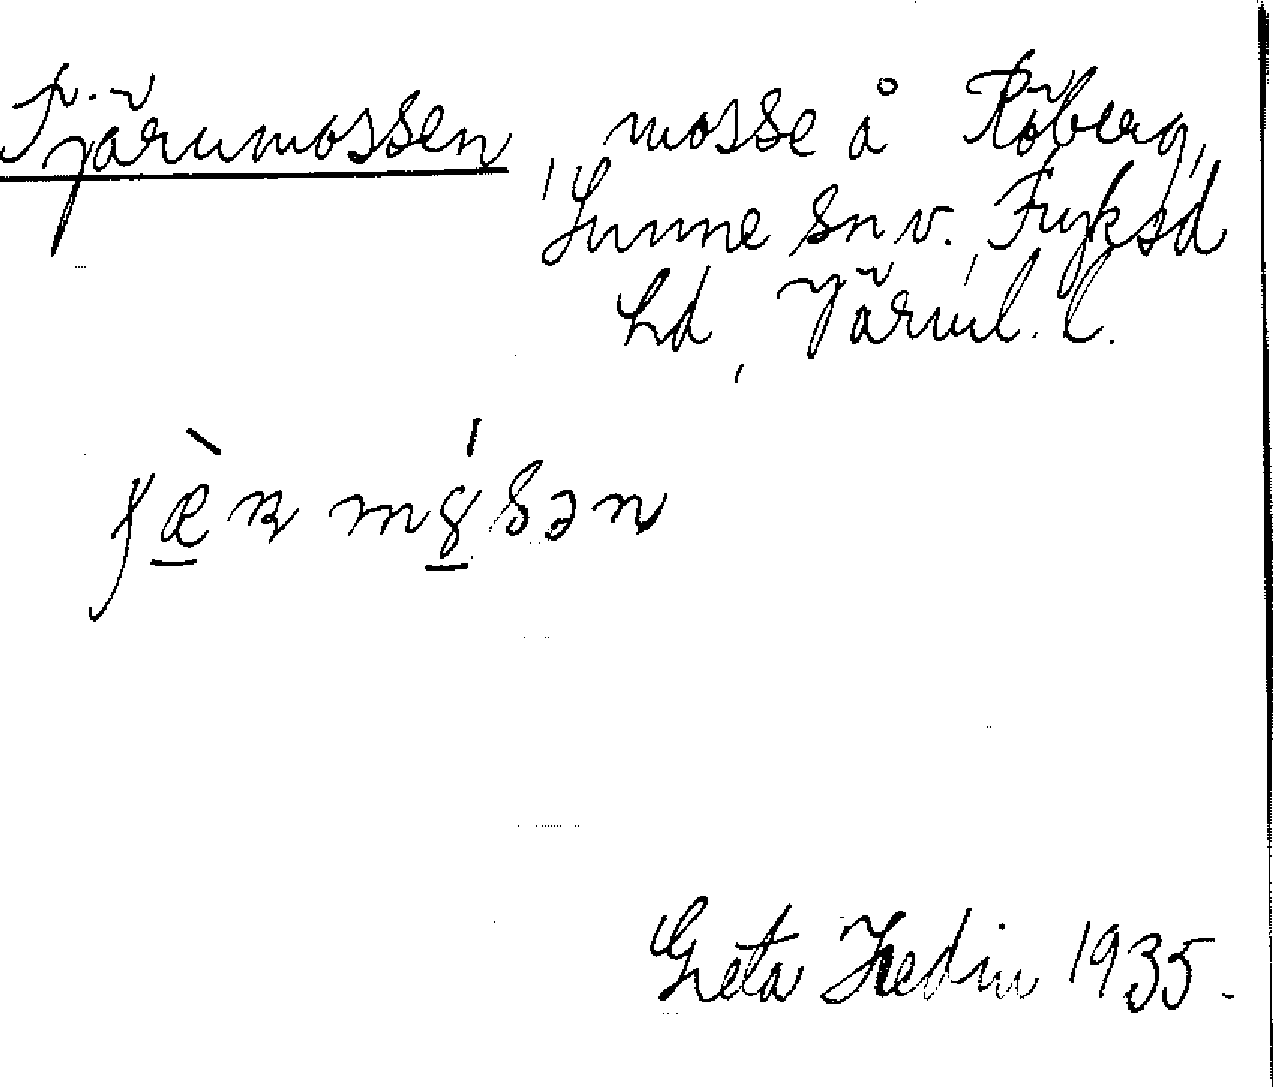 Tjärumossen, mosse å Råberg,
Sunne sn v. Fryksd
hd, Värml. l.
Greta Hedin 1935.